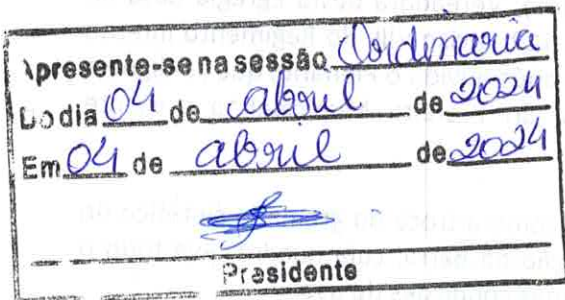 Apresente-se na sessão Ordinaria
Do dia 04 de abril de 2024
Em 04 de abril de 2024
Presidente